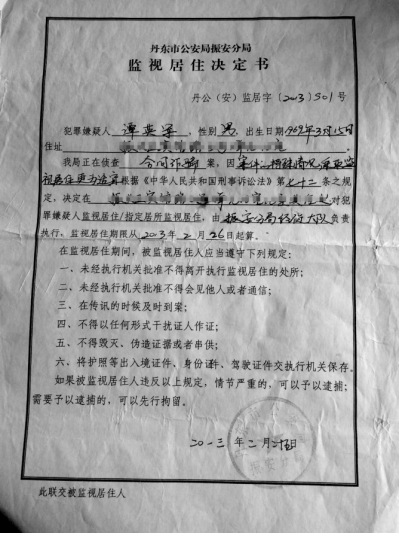 丹东市公安局振安分局
监视居住决定书
丹公（安）监居字〔2013〕501号
犯罪嫌疑人 谭 ，性别 男 出生日期 1969年3月15日
住址
我局正在侦查 合同诈骗 案，因 案件的特殊情况 采取监
视居住更为适宜 根据《中华人民共和国刑事诉讼法》第七十二条之规
定，决定在 对犯
罪嫌疑人监视居住/指定居所监视居住，由 振安分局经侦大队 负责
执行，监视居住期限从 2013年2月26日起算。
在监视居住期间，被监视居住人应当遵守下列规定：
一、未经执行机关批准不得离开执行监视居住的处所；
二、未经执行机关批准不得会见他人或者通信；
三、在传讯的时候及时到案；
四、不得以任何形式干扰证人作证；
五、不得毁灭、伪造证据或者串供；
六、将护照等出入境证件、身份证件、驾驶证件交执行机关保存。
如果被监视居住人违反以上规定，情节严重的，可以予以逮捕；
需要予以逮捕的，可以先行拘留。
二〇一三年二月 日
此联交被监视居住人